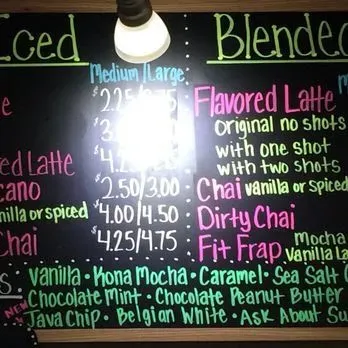 Iced
Blended
Medium/Large
$2.25/3.75
Flavored Latte
original no shots
with one shot
ed Latte
with two shots
cano $2.50/3.00
Chai vanilla or spiced
nilla or spiced $4.00/4.50
Dirty Chai
Chai $4.25/4.75
Fit Frap Mocha
Vanilla La
Vanilla • Kona Mocha • Caramel • Sea Salt C
Chocolate Mint • Chocolate Peanut Butter
NEW
Java Chip • Belgian White • Ask About Su